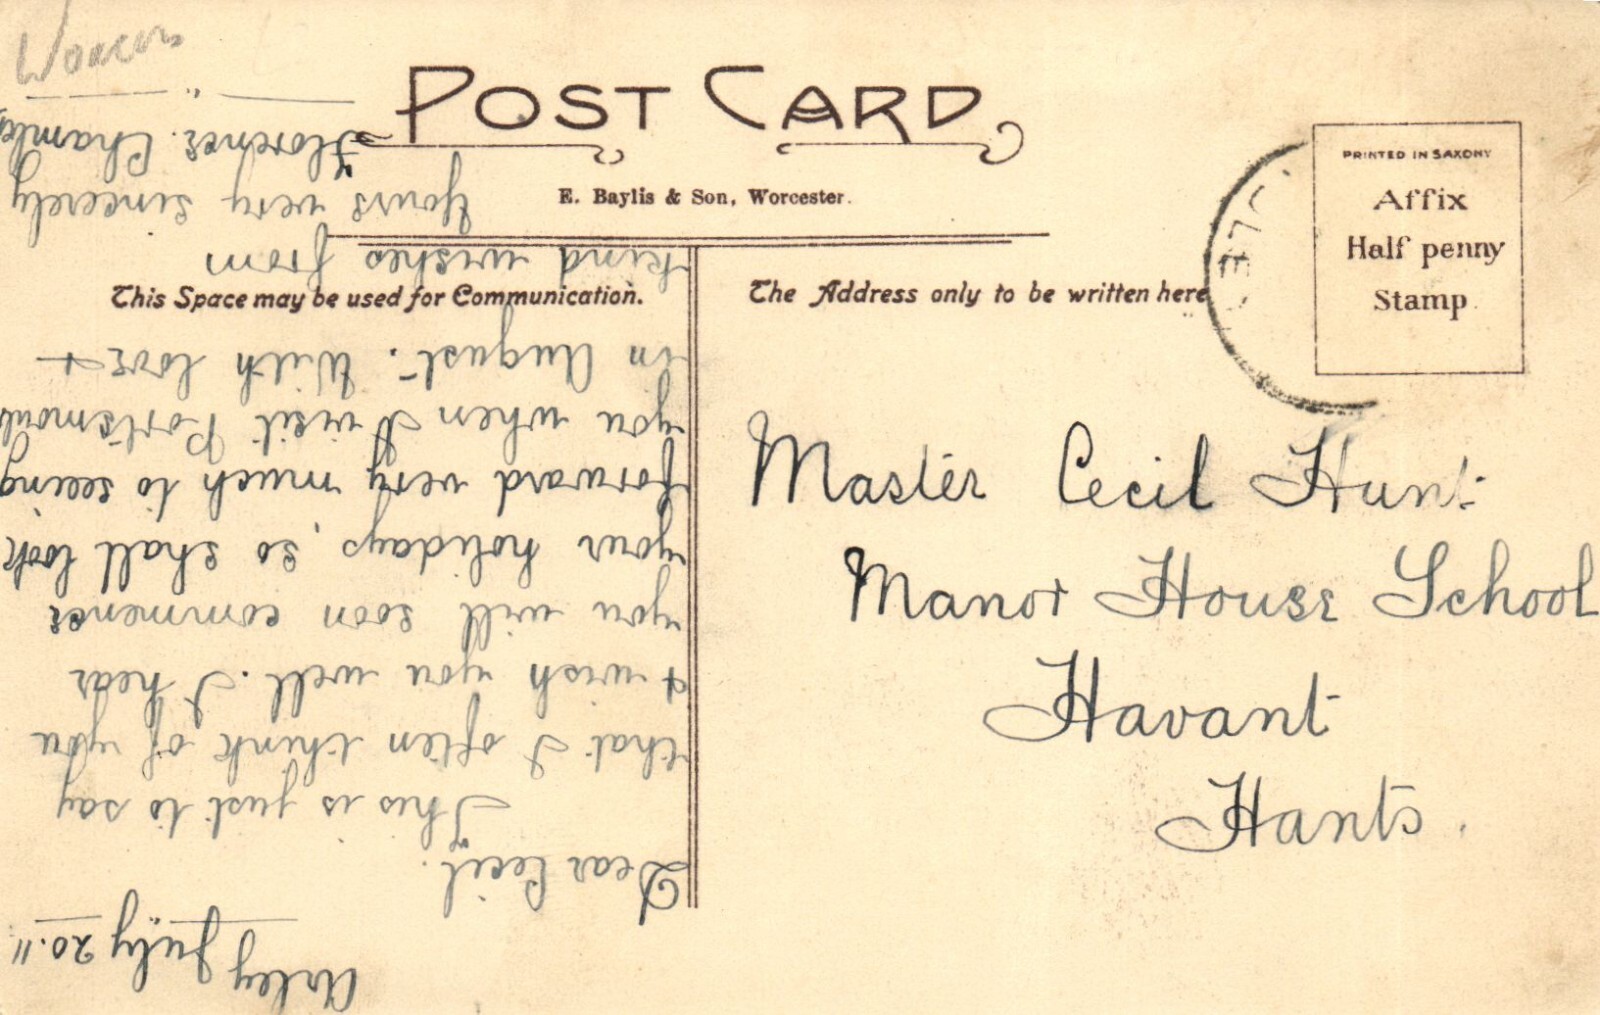 POST CARD
E. Baylis & Son, Worcester.
This Space may be used for Communication.
The Address only to be written here
PRINTED IN SAXONY
Affix
Half penny
Stamp
Master Cecil Hunt
Manor House School
Havant
Hants.
Arley
July 20. 11
Dear Cecil.
This is just to say
that I often think of you
& wish you well. I hear
you will soon commence
your holidays, so shall look
forward very much to seeing
you when I visit Portsmouth
in August. With love &
kind wishes from
Yours very sincerely
Florence